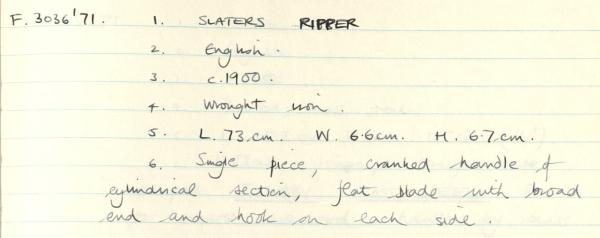 F. 3036'71. 1. SLATERS RIPPER
2. English.
3. c.1900.
4. Wrought iron.
5. L. 73.cm. W. 6.6cm. H. 6.7cm.
6. Single piece, cranked handle of
cylindrical section, flat blade with broad
end and hook on each side.